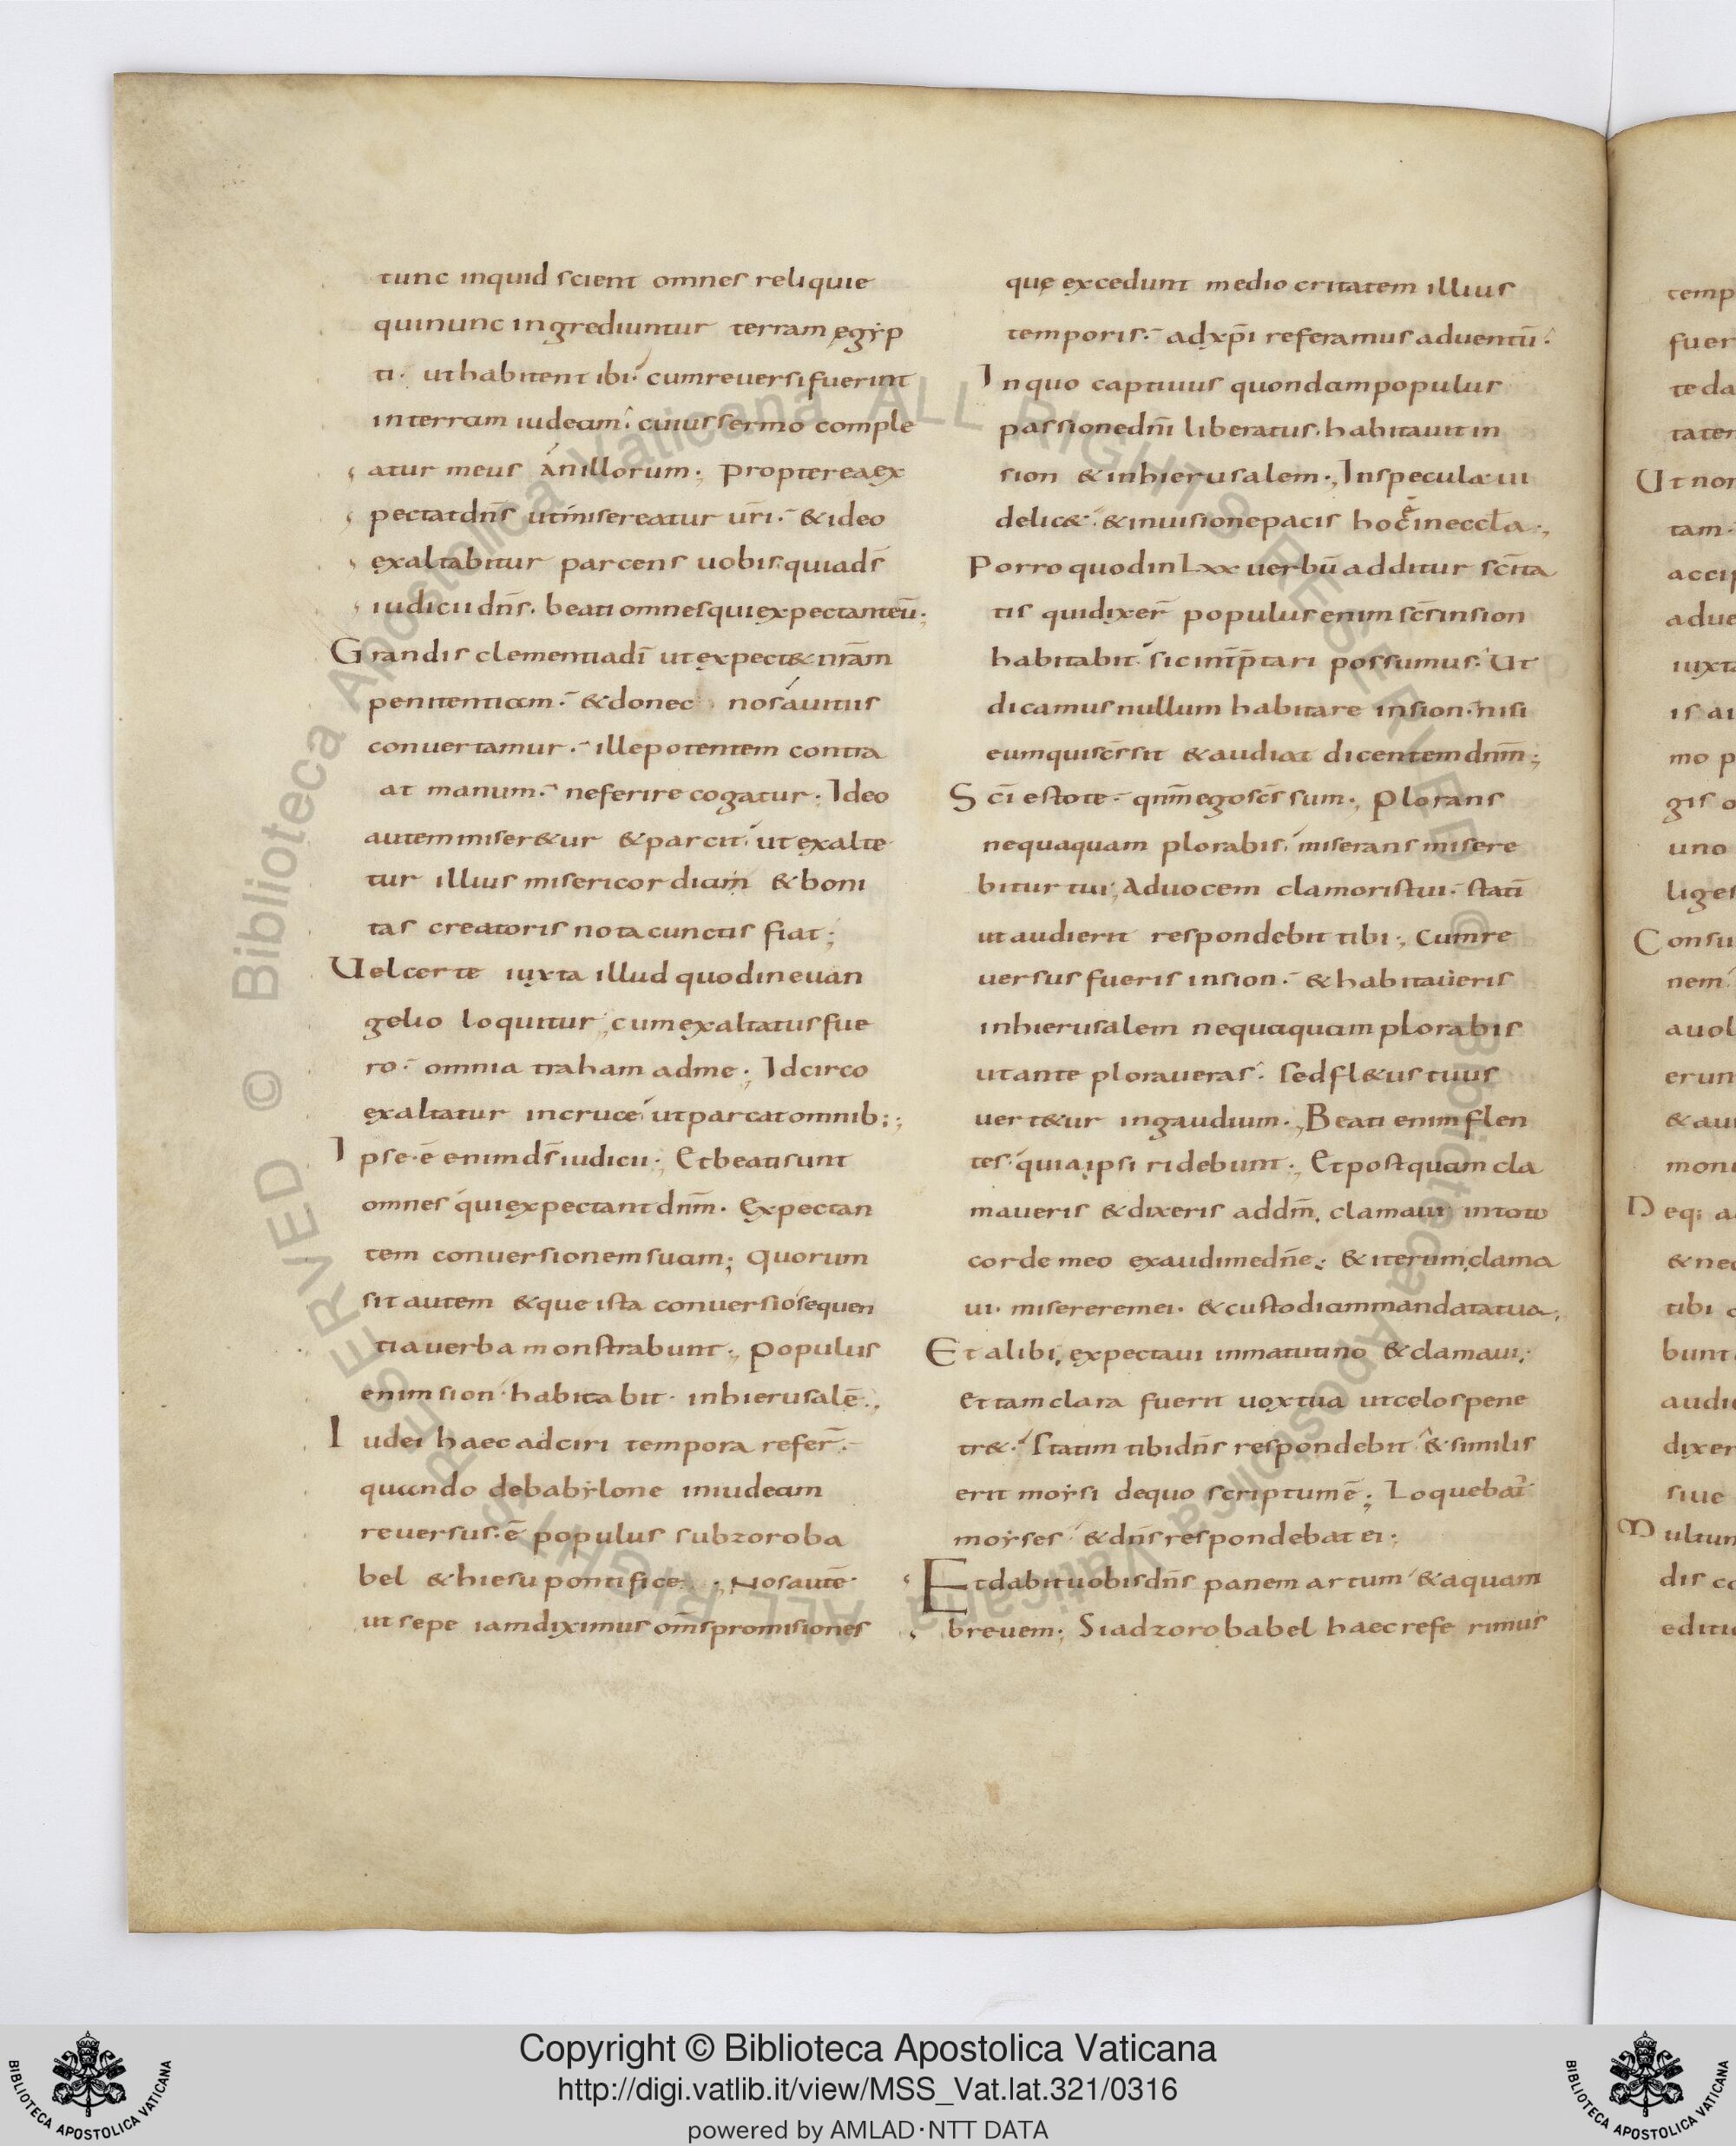 tunc inquid scient omnes reliquie
qui nunc ingrediuntur terram ęgẏp
ti· ut habitent ibi· cum reuersi fuerint
in terram iudeam· cuius sermo comple
atur meus an illorum·, propterea ex
pectat dn̄s ut misereatur ūri· & ideo
exaltabitur parcens uobis· quia ds̄
iudicii dn̄s· beati omnes qui expectant eū·,
Grandis clementia dī ut expect& nr̄am
penitentiam· & donec nos a uitiis
conuertamur· ille potentem contra
at manum· ne ferire cogatur· Ideo
autem miser&ur & parcit· ut exalte
tur illius misericordiam & boni
tas creatoris nota cunctis fiat·,
Uel certe iuxta illud quod in euan
gelio loquitur, cum exaltatus fue
ro· omnia traham ad me·, Idcirco
exaltatur in cruce ut parcat omnib;·,
Ipse·ē enim ds̄ iudicii·, Et beati sunt
omnes qui expectant dnm̄· Expectan
tem conuersionem suam; Quorum
sit autem & que ista conuersio sequen
tia uerba monstrabunt·, Populus
enim sion habitabit· in hierusalē·,
Iudei haec ad ciri tempora refer̄·
quando de babẏlone in iudeam
reuersus·ē populus sub zoroba
bel & hiesu pontifice·, Nos autē
ut sepe iam diximus om̄s promisiones
quę excedunt mediocritatem illius
temporis· ad xp̄i referamus aduentū·
In quo captiuus quondam populus
passione dn̄i liberatus· habitauit in
sion & in hierusalem·, In specula ui
delic&· & in uisione pacis hoc ē in eccl̄a·,
Porro quod in Lxx uerbū additur sc̄ita
tis qui dixer̄ populus enim sc̄s in sion
habitabit· sic int̄p̄tari possumus· Ut
dicamus nullum habitare in sion· nisi
eum qui sc̄s sit & audiat dicentem dnm̄·,
Sc̄i estote· qnm̄ ego sc̄s sum·, Plorans
nequaquam plorabis· miserans misere
bitur tui, Ad uocem clamoris tui· statī
ut audierit respondebit tibi·, Cum re
uersus fueris in sion· & habitaueris
in hierusalem nequaquam plorabis
ut ante ploraueras· sed fl&us tuus
uert&ur in gaudium·, Beati enim flen
tes· quia ipsi ridebunt·, Et postquam cla
maueris & dixeris ad dm̄, clamaui in toto
corde meo exaudi me dn̄e·, & iterum clama
ui· miserere mei· & custodiam mandata tua·,
Et alibi, expectaui in matutino & clamaui·,
et tam clara fuerit uox tua ut celos pene
tr&· Statim tibi dn̄s respondebit & similis
erit moẏsi de quo scriptum ē·, Loquebat̄
moẏses & dn̄s respondebat ei·,
Et dabit uobis dn̄s panem artum & aquam
breuem·, Si ad zorobabel haec referimus
Copyright © Biblioteca Apostolica Vaticana
http://digi.vatlib.it/view/MSS_Vat.lat.321/0316
powered by AMLAD·NTT DATA